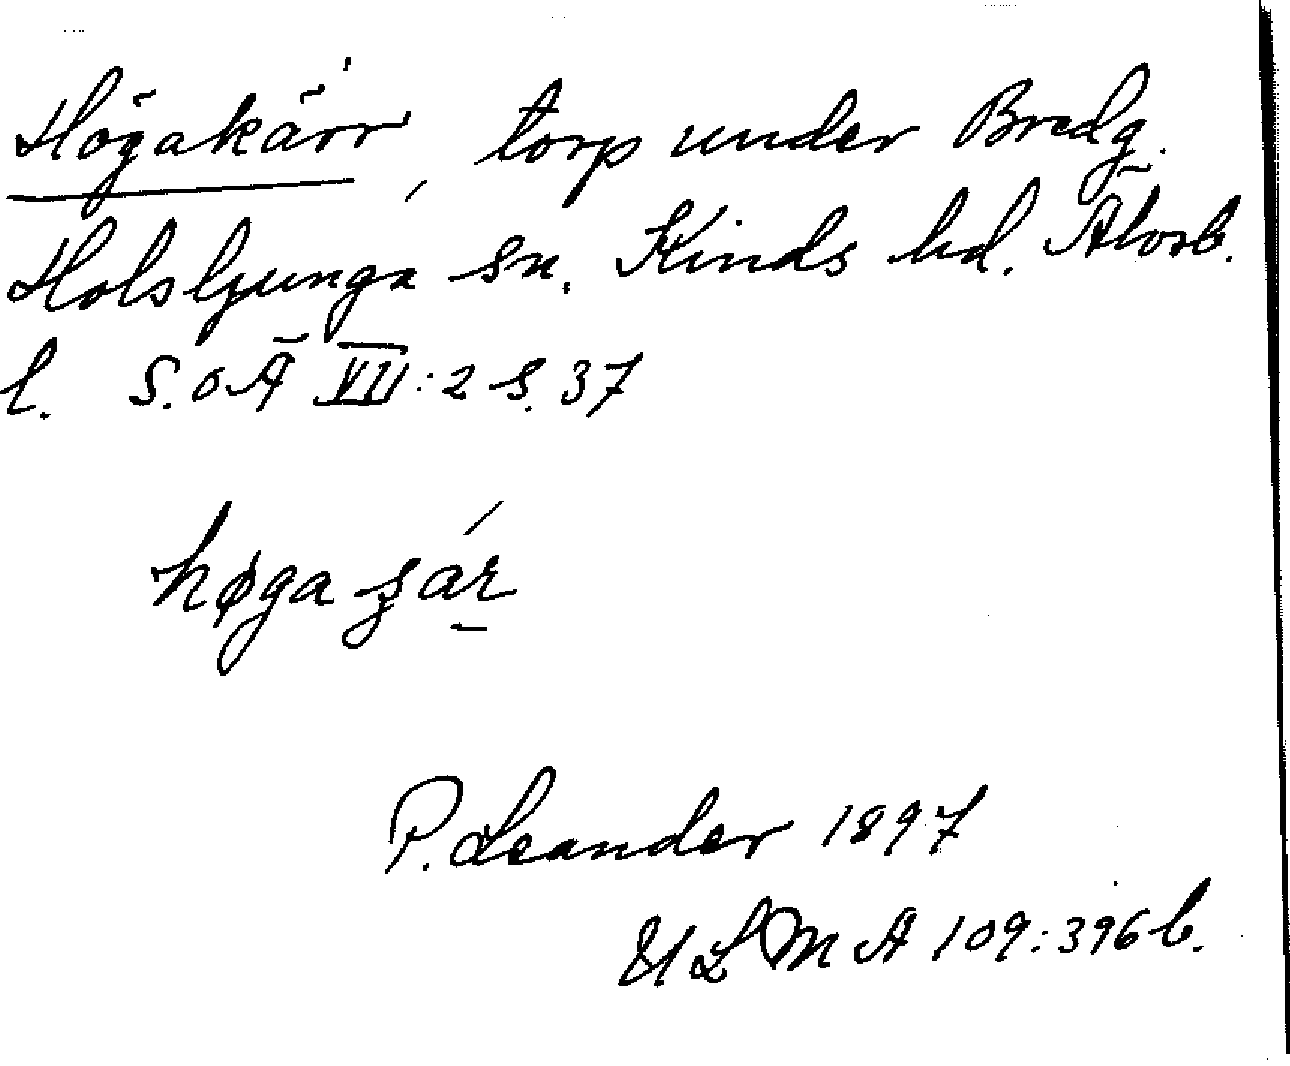 Högakärr, torp under Bredg.
Holsljunga sn. Kinds hd. Älvsb.
l. S.O.Ä VII:2 s. 37
høga
P. Leander 1897
ULMA 109:396 b.